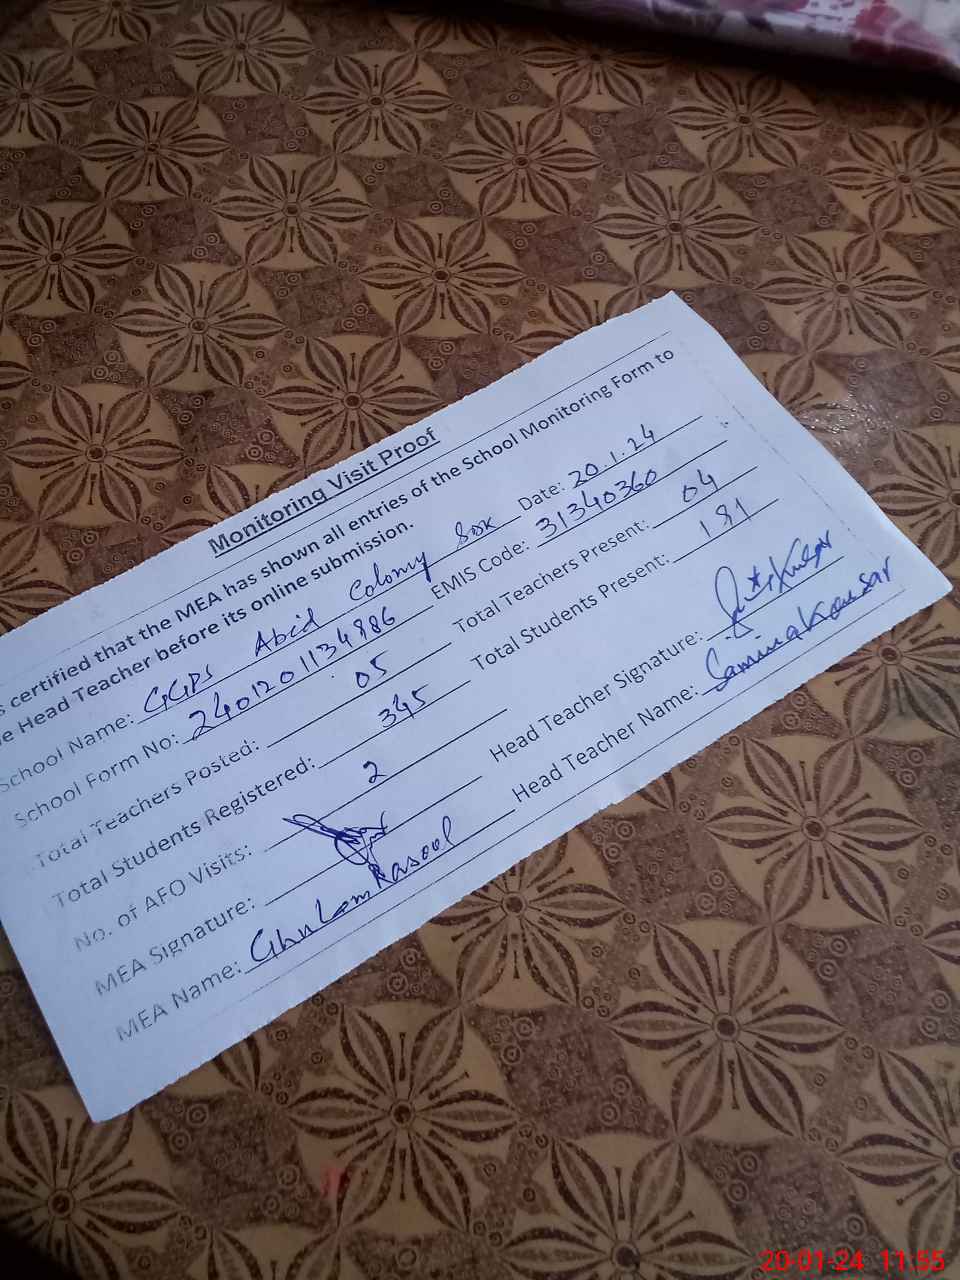 Monitoring Visit Proof
s certified that the MEA has shown all entries of the School Monitoring Form to
e Head Teacher before its online submission.
School Name: GGPS Abid Colony SDK Date: 20.1.24
School Form No: 2401201134886 EMIS Code: 31340360
Total Teachers Posted: 05 Total Teachers Present: 04
Total Students Registered: 345 Total Students Present: 181
No. of AFO Visits: 2
MEA Signature: Head Teacher Signature:
MEA Name: Ghulam Rasool Head Teacher Name: Samina Kousar
20-01-24 11:55